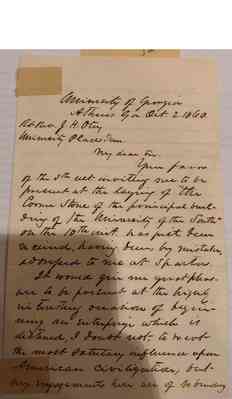 University of Georgia
Athens Ga Oct. 2 1860
Rt Rev. J. H. Otey
University Place Tenn.
My dear Sir.
Your favor
of the 5th ult inviting me to be
present at the laying of the
Corner Stone of the principal buil-
ding of the University of the South
on the 10th inst. has just been
received, having been by mistake
addressed to me at Sparta.
It would give me great pleas-
ure to be present at the highly
interesting occasion of begin-
ning an enterprise which is
destined, I doubt not, to exert
the most salutary influence upon
American civilization, but
my engagements here are of